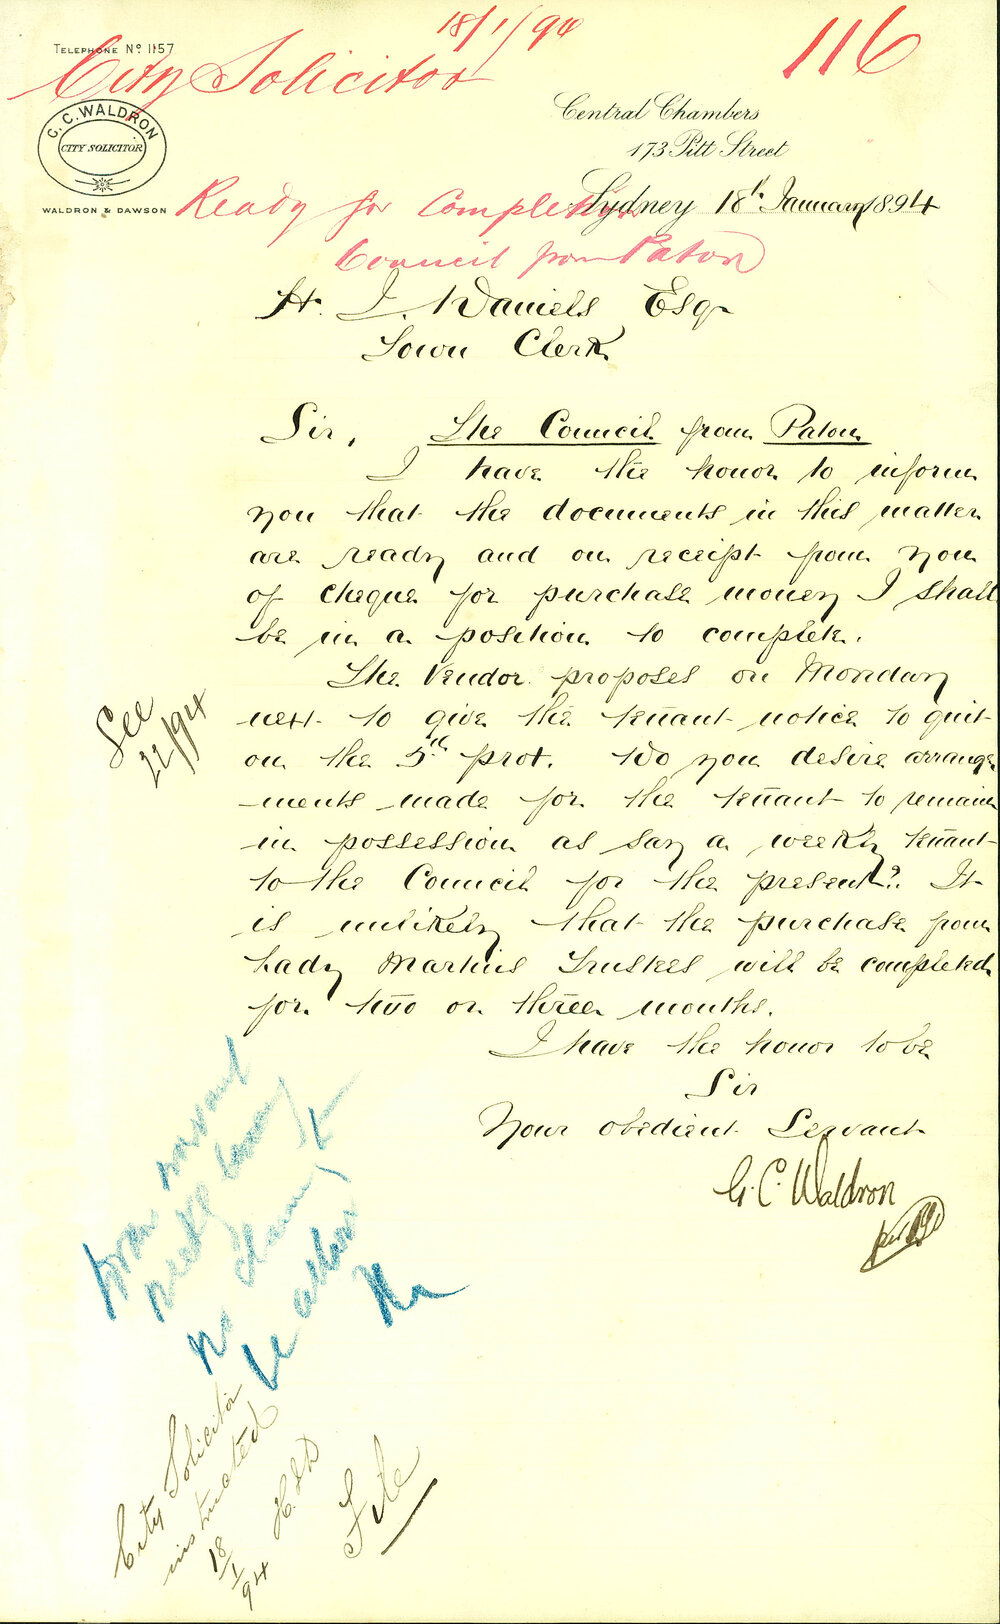 18/1/94
116
TELEPHONE No 1157
City Solicitor
G. C. WALDRON
CITY SOLICITOR
WALDRON & DAWSON
Central Chambers
173 Pitt Street
Sydney 18th January 1894
Ready for Completion
Council from Paton
H. J. Daniels Esqr
Town Clerk
Sir, The Council from Paton
I have the honor to inform
you that the documents in this matter
are ready and on receipt from you
of cheque for purchase money I shall
be in a position to complete.
The Vendor proposes on Monday
next to give the tenant notice to quit
on the 5th prox. Do you desire arrange
ments made for the tenant to remain
in possession as say a weekly tenant
to the Council for the present? It
is unlikely that the purchase from
Lady Martins Trustees will be completed
for two or three months.
See
22/94
I have the honor to be
Sir
Your obedient Servant
G. C. Waldron
per
weekly tenancy
no claim
be allowed
City Solicitor
instructed
18/1/94
H.J.D
File